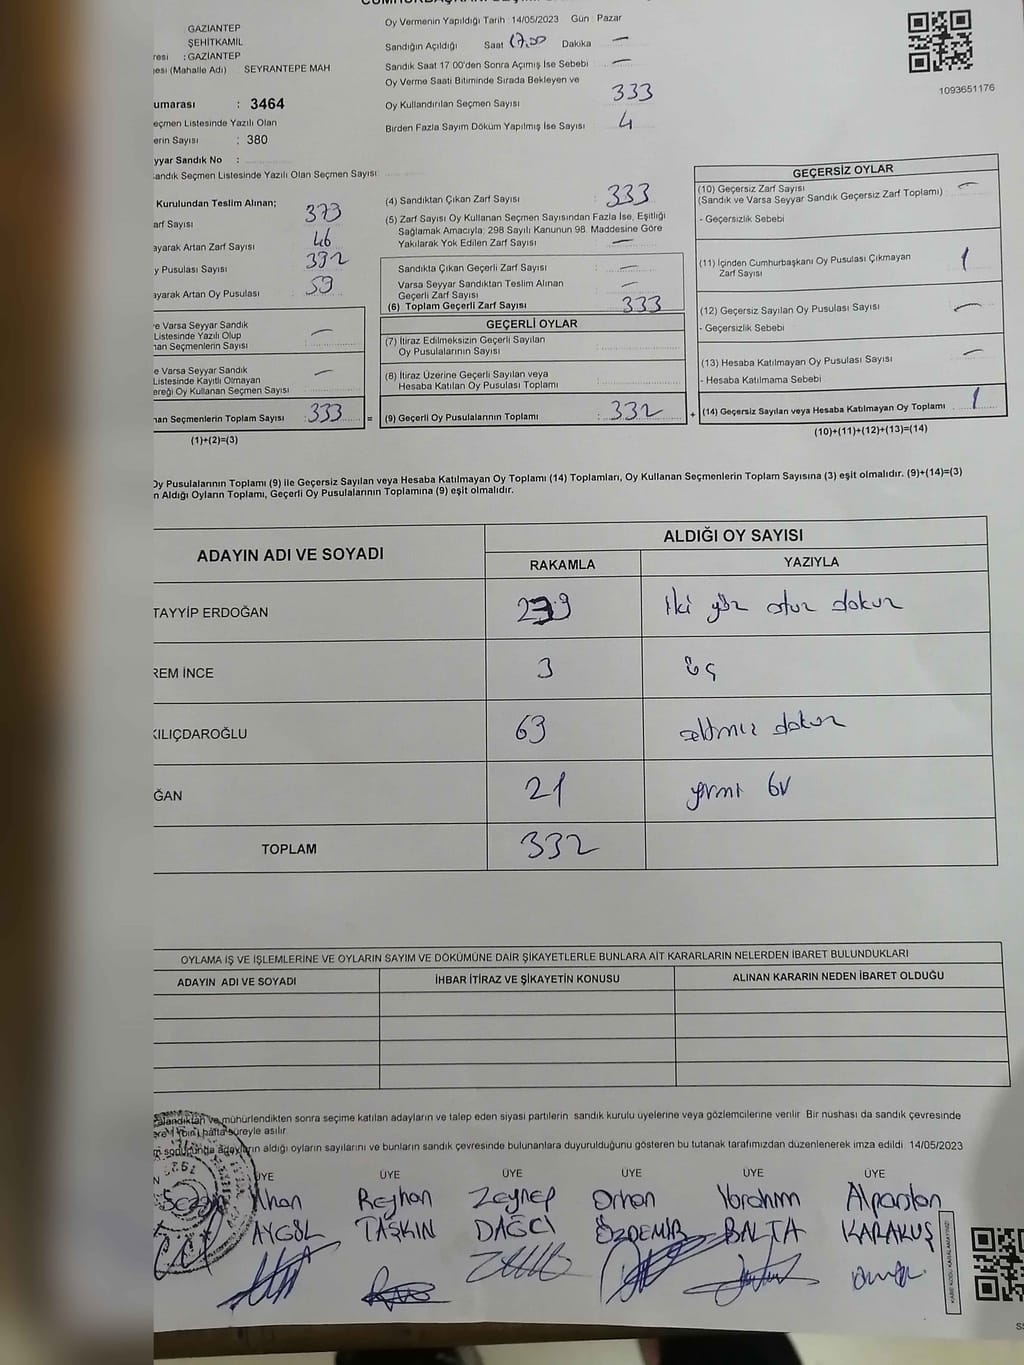 GAZİANTEP
ŞEHİTKAMİL
resi : GAZİANTEP
gesi (Mahalle Adı) SEYRANTEPE MAH
umarası : 3464
eçmen Listesinde Yazılı Olan
erin Sayısı : 380
yyar Sandık No :
andık Seçmen Listesinde Yazılı Olan Seçmen Sayısı:
Oy Vermenin Yapıldığı Tarih 14/05/2023 Gün Pazar
Sandığın Açıldığı Saat 17.00 Dakika —
Sandık Saat 17 00'den Sonra Açımış İse Sebebi —
Oy Verme Saati Bitiminde Sırada Bekleyen ve
Oy Kullandırılan Seçmen Sayısı 333
Birden Fazla Sayım Döküm Yapılmış İse Sayısı 4
1093651176
Kurulundan Teslim Alınan;
arf Sayısı 379
ayarak Artan Zarf Sayısı 46
y Pusulası Sayısı 392
ayarak Artan Oy Pusulası : 59
e Varsa Seyyar Sandık
Listesinde Yazılı Olup
nan Seçmenlerin Sayısı —
e Varsa Seyyar Sandık
Listesinde Kayıtlı Olmayan
ereği Oy Kullanan Seçmen Sayısı —
nan Seçmenlerin Toplam Sayısı : 333 =
(1)+(2)=(3)
(4) Sandıktan Çıkan Zarf Sayısı : 333
(5) Zarf Sayısı Oy Kullanan Seçmen Sayısından Fazla İse, Eşitliği
Sağlamak Amacıyla; 298 Sayılı Kanunun 98. Maddesine Göre
Yakılarak Yok Edilen Zarf Sayısı : —
Sandıkta Çıkan Geçerli Zarf Sayısı : —
Varsa Seyyar Sandıktan Teslim Alınan
Geçerli Zarf Sayısı : —
(6) Toplam Geçerli Zarf Sayısı : 333
GEÇERLİ OYLAR
(7) İtiraz Edilmeksizin Geçerli Sayılan
Oy Pusulalarının Sayısı :
(8) İtiraz Üzerine Geçerli Sayılan veya
Hesaba Katılan Oy Pusulası Toplamı :
(9) Geçerli Oy Pusulalarının Toplamı : 332 +
GEÇERSİZ OYLAR
(10) Geçersiz Zarf Sayısı
(Sandık ve Varsa Seyyar Sandık Geçersiz Zarf Toplamı) —
- Geçersizlik Sebebi
(11) İçinden Cumhurbaşkanı Oy Pusulası Çıkmayan
Zarf Sayısı 1
(12) Geçersiz Sayılan Oy Pusulası Sayısı : —
- Geçersizlik Sebebi
(13) Hesaba Katılmayan Oy Pusulası Sayısı : —
- Hesaba Katılmama Sebebi
(14) Geçersiz Sayılan veya Hesaba Katılmayan Oy Toplamı 1
(10)+(11)+(12)+(13)=(14)
Oy Pusulalarının Toplamı (9) ile Geçersiz Sayılan veya Hesaba Katılmayan Oy Toplamı (14) Toplamları, Oy Kullanan Seçmenlerin Toplam Sayısına (3) eşit olmalıdır. (9)+(14)=(3)
n Aldığı Oyların Toplamı, Geçerli Oy Pusulalarının Toplamına (9) eşit olmalıdır.
ADAYIN ADI VE SOYADI ALDIĞI OY SAYISI
RAKAMLA YAZIYLA
TAYYİP ERDOĞAN iki yüz otuz dokuz
REM İNCE 3 üç
KILIÇDAROĞLU 69 altmış dokuz
ĞAN 21 yirmi bir
TOPLAM 332
OYLAMA İŞ VE İŞLEMLERİNE VE OYLARIN SAYIM VE DÖKÜMÜNE DAİR ŞİKAYETLERLE BUNLARA AİT KARARLARIN NELERDEN İBARET BULUNDUKLARI
ADAYIN ADI VE SOYADI İHBAR İTİRAZ VE ŞİKAYETİN KONUSU ALINAN KARARIN NEDEN İBARET OLDUĞU
alandıktan ve mühürlendikten sonra seçime katılan adayların ve talep eden siyasi partilerin sandık kurulu üyelerine veya gözlemcilerine verilir Bir nüshası da sandık çevresinde
ere 1 (bir) hafta süreyle asılır.
m sonucunda adayların aldığı oyların sayılarını ve bunların sandık çevresinde bulunanlara duyurulduğunu gösteren bu tutanak tarafımızdan düzenlenerek imza edildi 14/05/2023
ÜYE ÜYE ÜYE ÜYE ÜYE ÜYE
Sezgin İlhan Reyhan Zeynep Orhan İbrahim Alparslan
AYGÜL TAŞKIN DAĞCI ÖZDEMİR BALTA KARAKUŞ